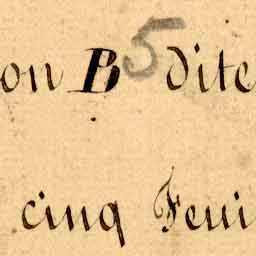 on B 5 dite
cinq Feui